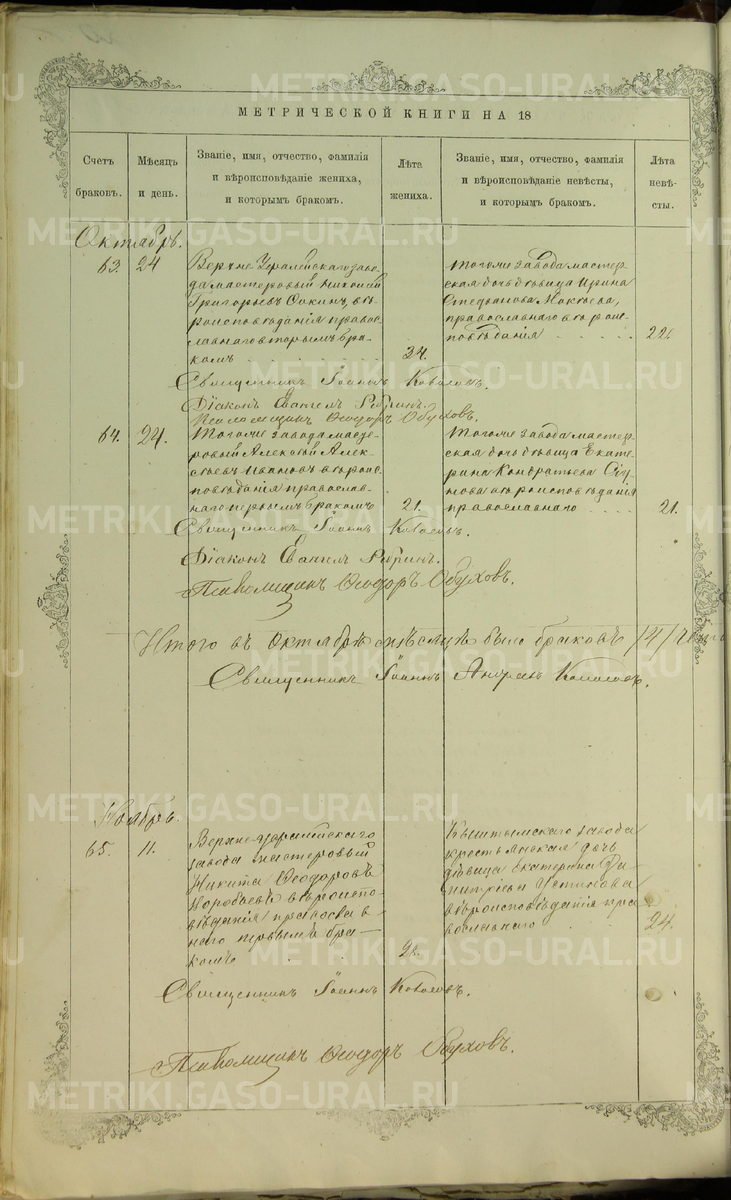 МЕТРИЧЕСКОЙ КНИГИ НА 18
Счетъ браковъ.
Мѣсяцъ и день.
Званіе, имя, отчество, фамилія и вѣроисповѣданіе жениха, и которымъ бракомъ.
Лѣта жениха.
Званіе, имя, отчество, фамилія и вѣроисповѣданіе невѣсты, и которымъ бракомъ.
Лѣта невѣсты.
Октябрь.
63. 24
Верхне Уфалейскаго заво-
да мастеровый
Григорьевъ вѣ-
роисповѣданія правос-
лавнаго вторымъ бра-
комъ
34.
Тогоже завода мастер-
ская дочь дѣвица Ирина
Стефанова
православнаго вѣроис-
повѣданія
22.
Священникъ Іоаннъ
Діаконъ
Псаломщикъ Ѳеодоръ Обуховъ.
64. 24.
Тогоже завода масте-
ровый Алексѣй Алек-
сѣевъ Ивановъ вѣроис-
повѣданія православ-
наго первымъ бракомъ
21.
Тогоже завода мастер-
ская дочь дѣвица Екате-
рина Кондратьева
вѣроисповѣданія
православнаго
21.
Священникъ Іоаннъ
Діаконъ
Псаломщикъ Ѳеодоръ Обуховъ.
Итого въ Октябрѣ мѣсяцѣ было браковъ /4/
Священникъ Іоаннъ
Ноябрь.
65. 11.
Верхне-Уфалейскаго
завода мастеровый
Никита Ѳеодоровъ
Воробьевъ вѣроиспо-
вѣданія православ-
наго первымъ бра-
комъ
Кыштымскаго завода
крестьянская дочь
дѣвица Екатерина Ди-
митріева
вѣроисповѣданія пра-
вославнаго
24.
Священникъ Іоаннъ
Псаломщикъ Ѳеодоръ Обуховъ.
METRIKI.GASO-URAL.RU